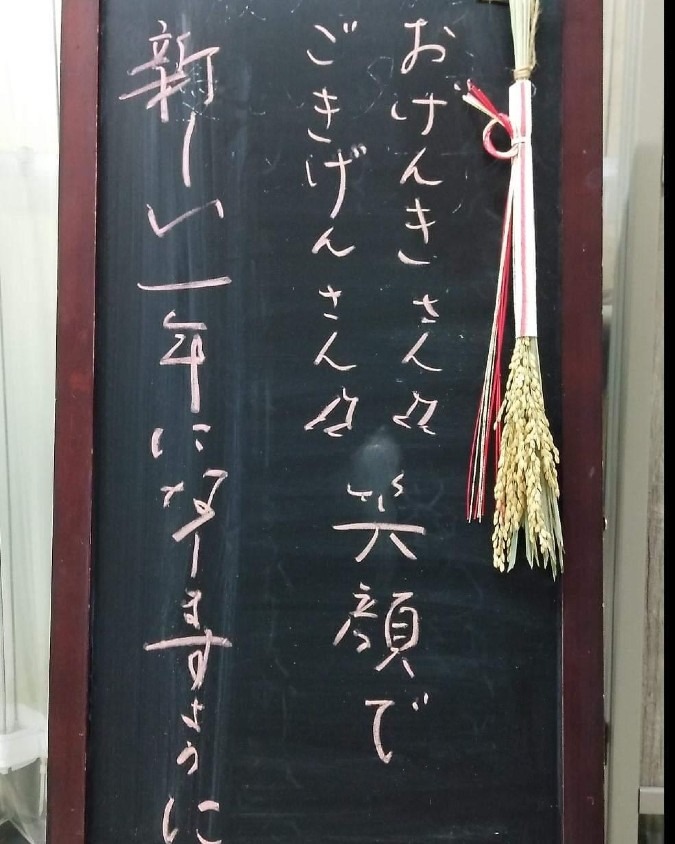 おげんきさん
ごきげんさん
笑顔で
新しい一年になりますように